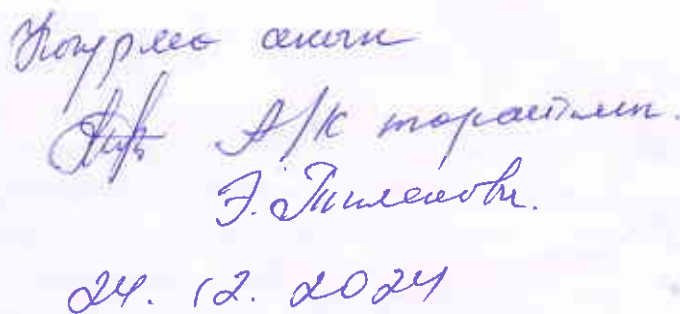 Көчүрмө анык
А/К төрайымы.
Э. Тиленова.
24. 12. 2024